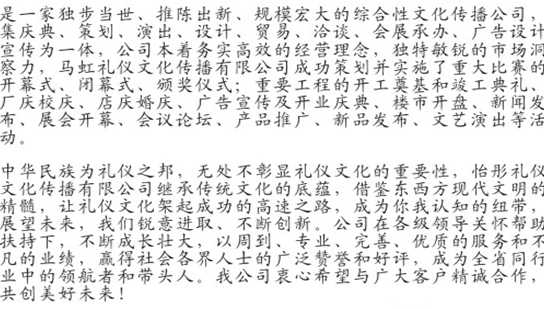 是一家独步当世、推陈出新、规模宏大的综合性文化传播公司，
集庆典、策划、演出、设计、贸易、洽谈、会展承办、广告设计
宣传为一体，公司本着务实高效的经营理念，独特敏锐的市场洞
察力，马虹礼仪文化传播有限公司成功策划并实施了重大比赛的
开幕式、闭幕式、颁奖仪式；重要工程的开工奠基和竣工典礼、
厂庆校庆、店庆婚庆、广告宣传及开业庆典、楼市开盘、新闻发
布、展会开幕、会议论坛、产品推广、新品发布、文艺演出等活
动。
中华民族为礼仪之邦，无处不彰显礼仪文化的重要性，怡彤礼仪
文化传播有限公司继承传统文化的底蕴，借鉴东西方现代文明的
精髓，让礼仪文化架起成功的高速之路，成为你我认知的纽带，
展望未来，我们锐意进取、不断创新。公司在各级领导关怀帮助
扶持下，不断成长壮大，以周到、专业、完善、优质的服务和不
凡的业绩，赢得社会各界人士的广泛赞誉和好评，成为全省同行
业中的领航者和带头人。我公司衷心希望与广大客户精诚合作，
共创美好未来！